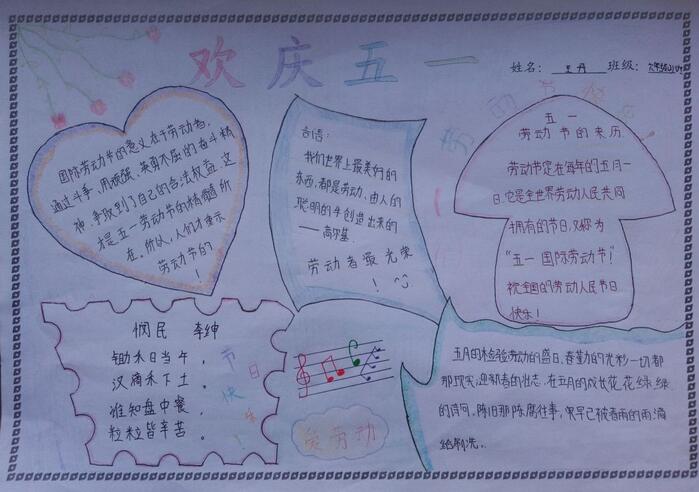 欢庆五一
姓名：王丹 班级：
国际劳动节的意义在于劳动者，
通过斗争，用顽强、英勇不屈的奋斗精
神，争取到了自己的合法权益，这
才是五一劳动节的精髓所
在。所以，人们才庆示
劳动节的
！
名言：
我们世界上最美好的
东西，都是劳动、由人的
聪明的手创造出来的
——高尔基.
劳动者最光荣
！
劳动节快乐
五一
劳动节的来历
劳动节定在每年的五月一
日，它是全世界劳动人民共同
拥有的节日，又称为
“五一国际劳动节！”
祝全国的劳动人民节日
快乐！
悯民 李绅
锄禾日当午，
汉滴禾下土。
谁知盘中餐，
粒粒皆辛苦。
节日快乐！
爱劳动
五月的检验劳动的盛日，春勤的光彩一切都
那现实，迎新者的壮志，在五月的成女花，花绿绿
的诗句，陈旧那陈腐往事，早已被春雨的雨滴
给刷洗.